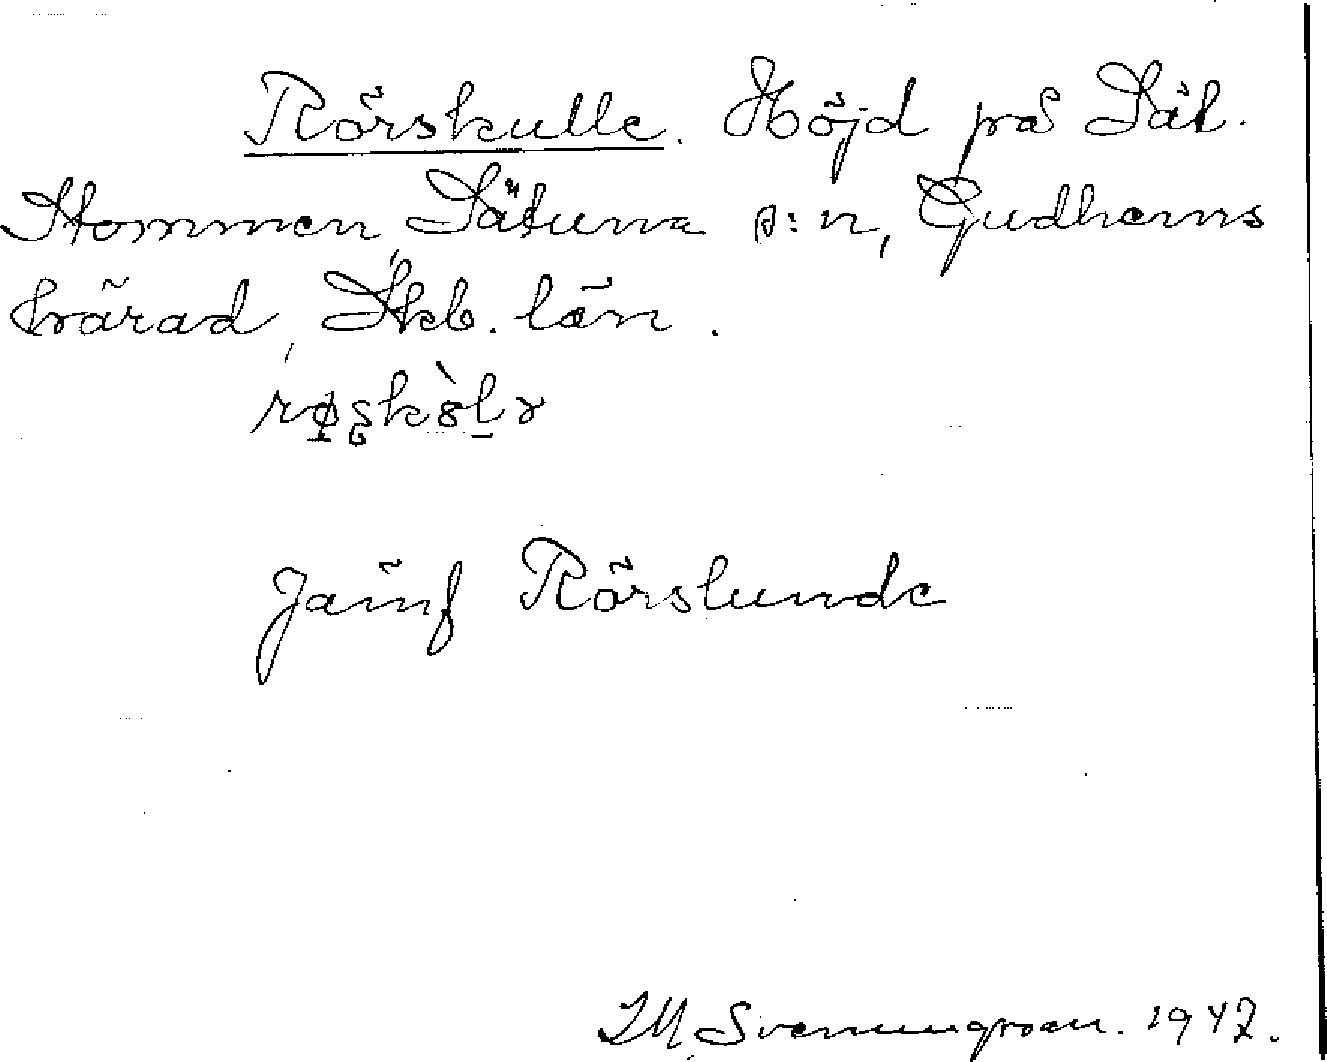 Rörskulle. Höjd på Sät.
Stommen, Sätuna s:n, Gudhems
härad, Skb. län.
Jämf Rörslunda
IM Svenungsson. 1947.